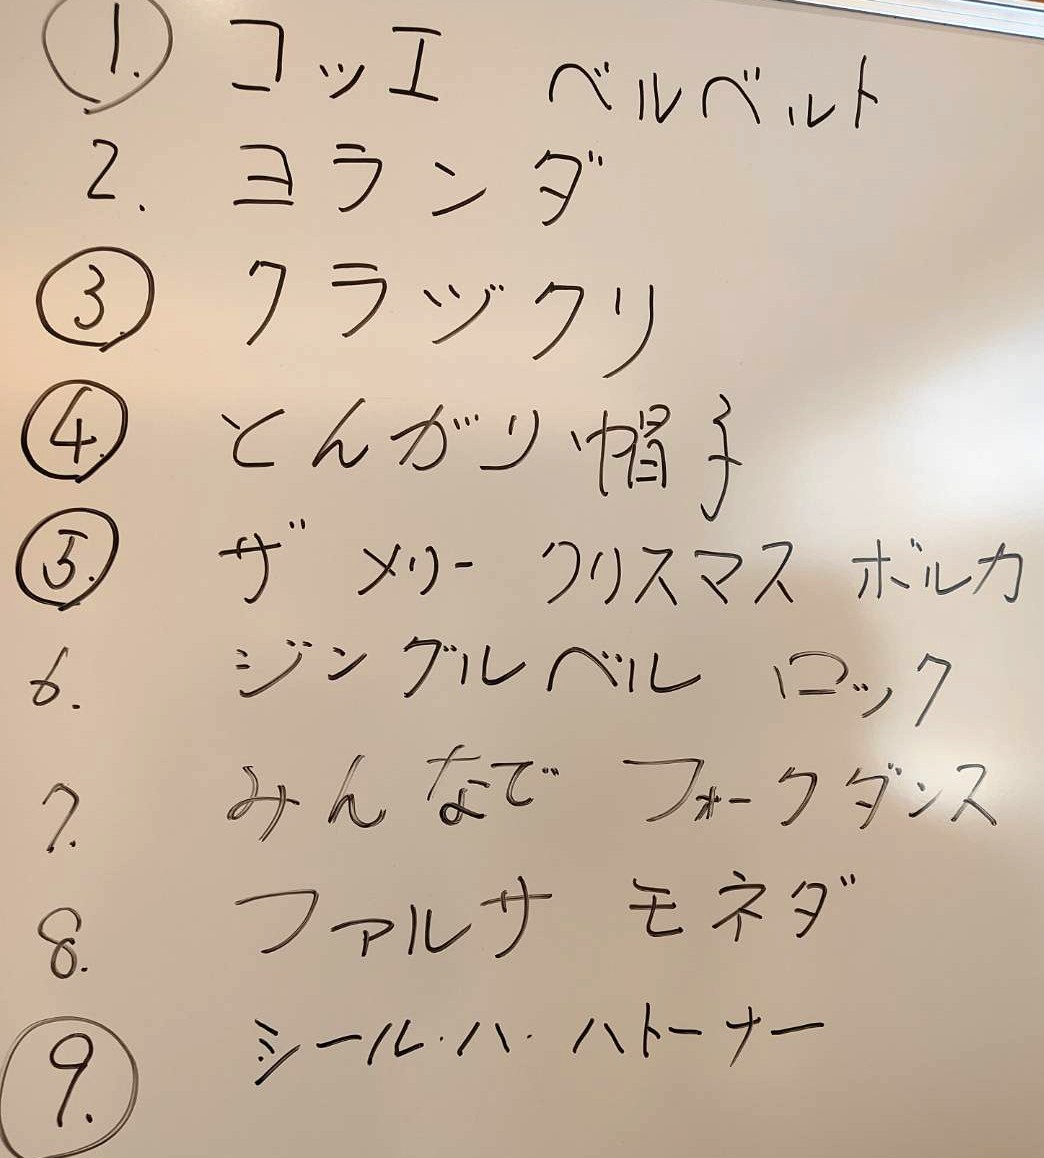 1. コッエ ベルベルト
2. ヨランダ
3. クラヅクリ
4. とんがり帽子
5. ザ メリー クリスマス ポルカ
6. ジングルベル ロック
7. みんなで フォークダンス
8. ファルサ モネダ
9. シール・ハ・ハトーナー